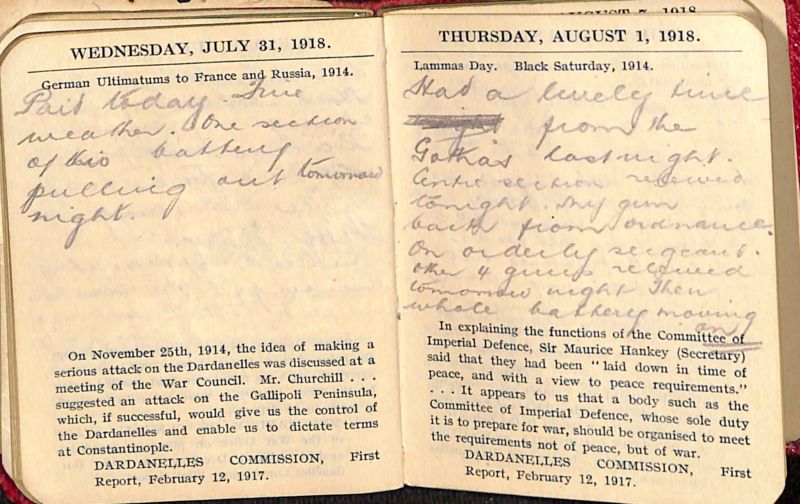 WEDNESDAY, JULY 31, 1918.
German Ultimatums to France and Russia, 1914.
Paid today. Fine
weather. One section
of this battery
pulling out tomorrow
night.
On November 25th, 1914, the idea of making a
serious attack on the Dardanelles was discussed at a
meeting of the War Council. Mr. Churchill . . .
suggested an attack on the Gallipoli Peninsula,
which, if successful, would give us the control of
the Dardanelles and enable us to dictate terms
at Constantinople.
DARDANELLES COMMISSION, First
Report, February 12, 1917.
AUGUST 7, 1918
THURSDAY, AUGUST 1, 1918.
Lammas Day. Black Saturday, 1914.
Had a lively time
from the
Gothas last night.
Centre section relieved
tonight. My gun
back from ordnance.
On orderly sergeant.
other 4 guns relieved
tomorrow night Then
whole battery moving
on
In explaining the functions of the Committee of
Imperial Defence, Sir Maurice Hankey (Secretary)
said that they had been "laid down in time of
peace, and with a view to peace requirements."
. . . It appears to us that a body such as the
Committee of Imperial Defence, whose sole duty
it is to prepare for war, should be organised to meet
the requirements not of peace, but of war.
DARDANELLES COMMISSION, First
Report, February 12, 1917.